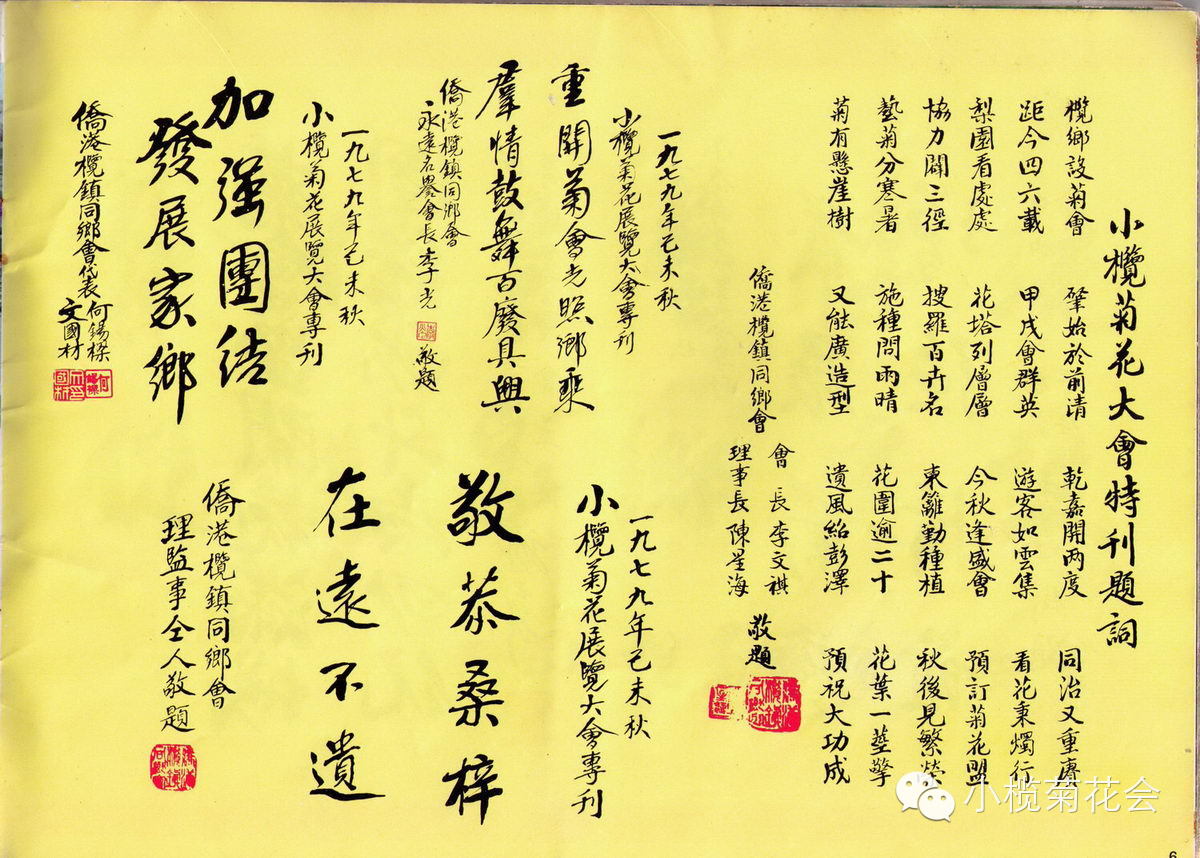 小欖菊花大會特刊題詞
欖鄉設菊會 肇始於前清 乾嘉開兩度 同治又重賡
距今四六載 甲戌會群英 遊客如雲集 看花秉燭行
梨園看處處 花塔列層層 今秋逢盛會 預訂菊花盟
協力闢三徑 搜羅百卉名 東籬勤種植 秋後見繁榮
藝菊分寒暑 施種問雨晴 花圍逾二十 花葉一莖擎
菊有懸崖樹 又能廣造型 遺風紹彭澤 預祝大功成
僑港欖鎮同鄉會
會長李文祺
理事長陳星海
敬題
一九七九年己未秋
小欖菊花展覽大會專刊
重開菊會光照鄉乘
羣情鼓舞百廢具興
僑港欖鎮同鄉會
永遠名譽會長李光
敬題
一九七九年己未秋
小欖菊花展覽大會專刊
加强團结
發展家鄉
僑港欖鎮同鄉會代表
何錫樑
文國材
一九七九年己未秋
小欖菊花展覽大會專刊
敬恭桑梓
在遠不遺
僑港欖鎮同鄉會
理監事仝人敬題
小榄菊花会
6